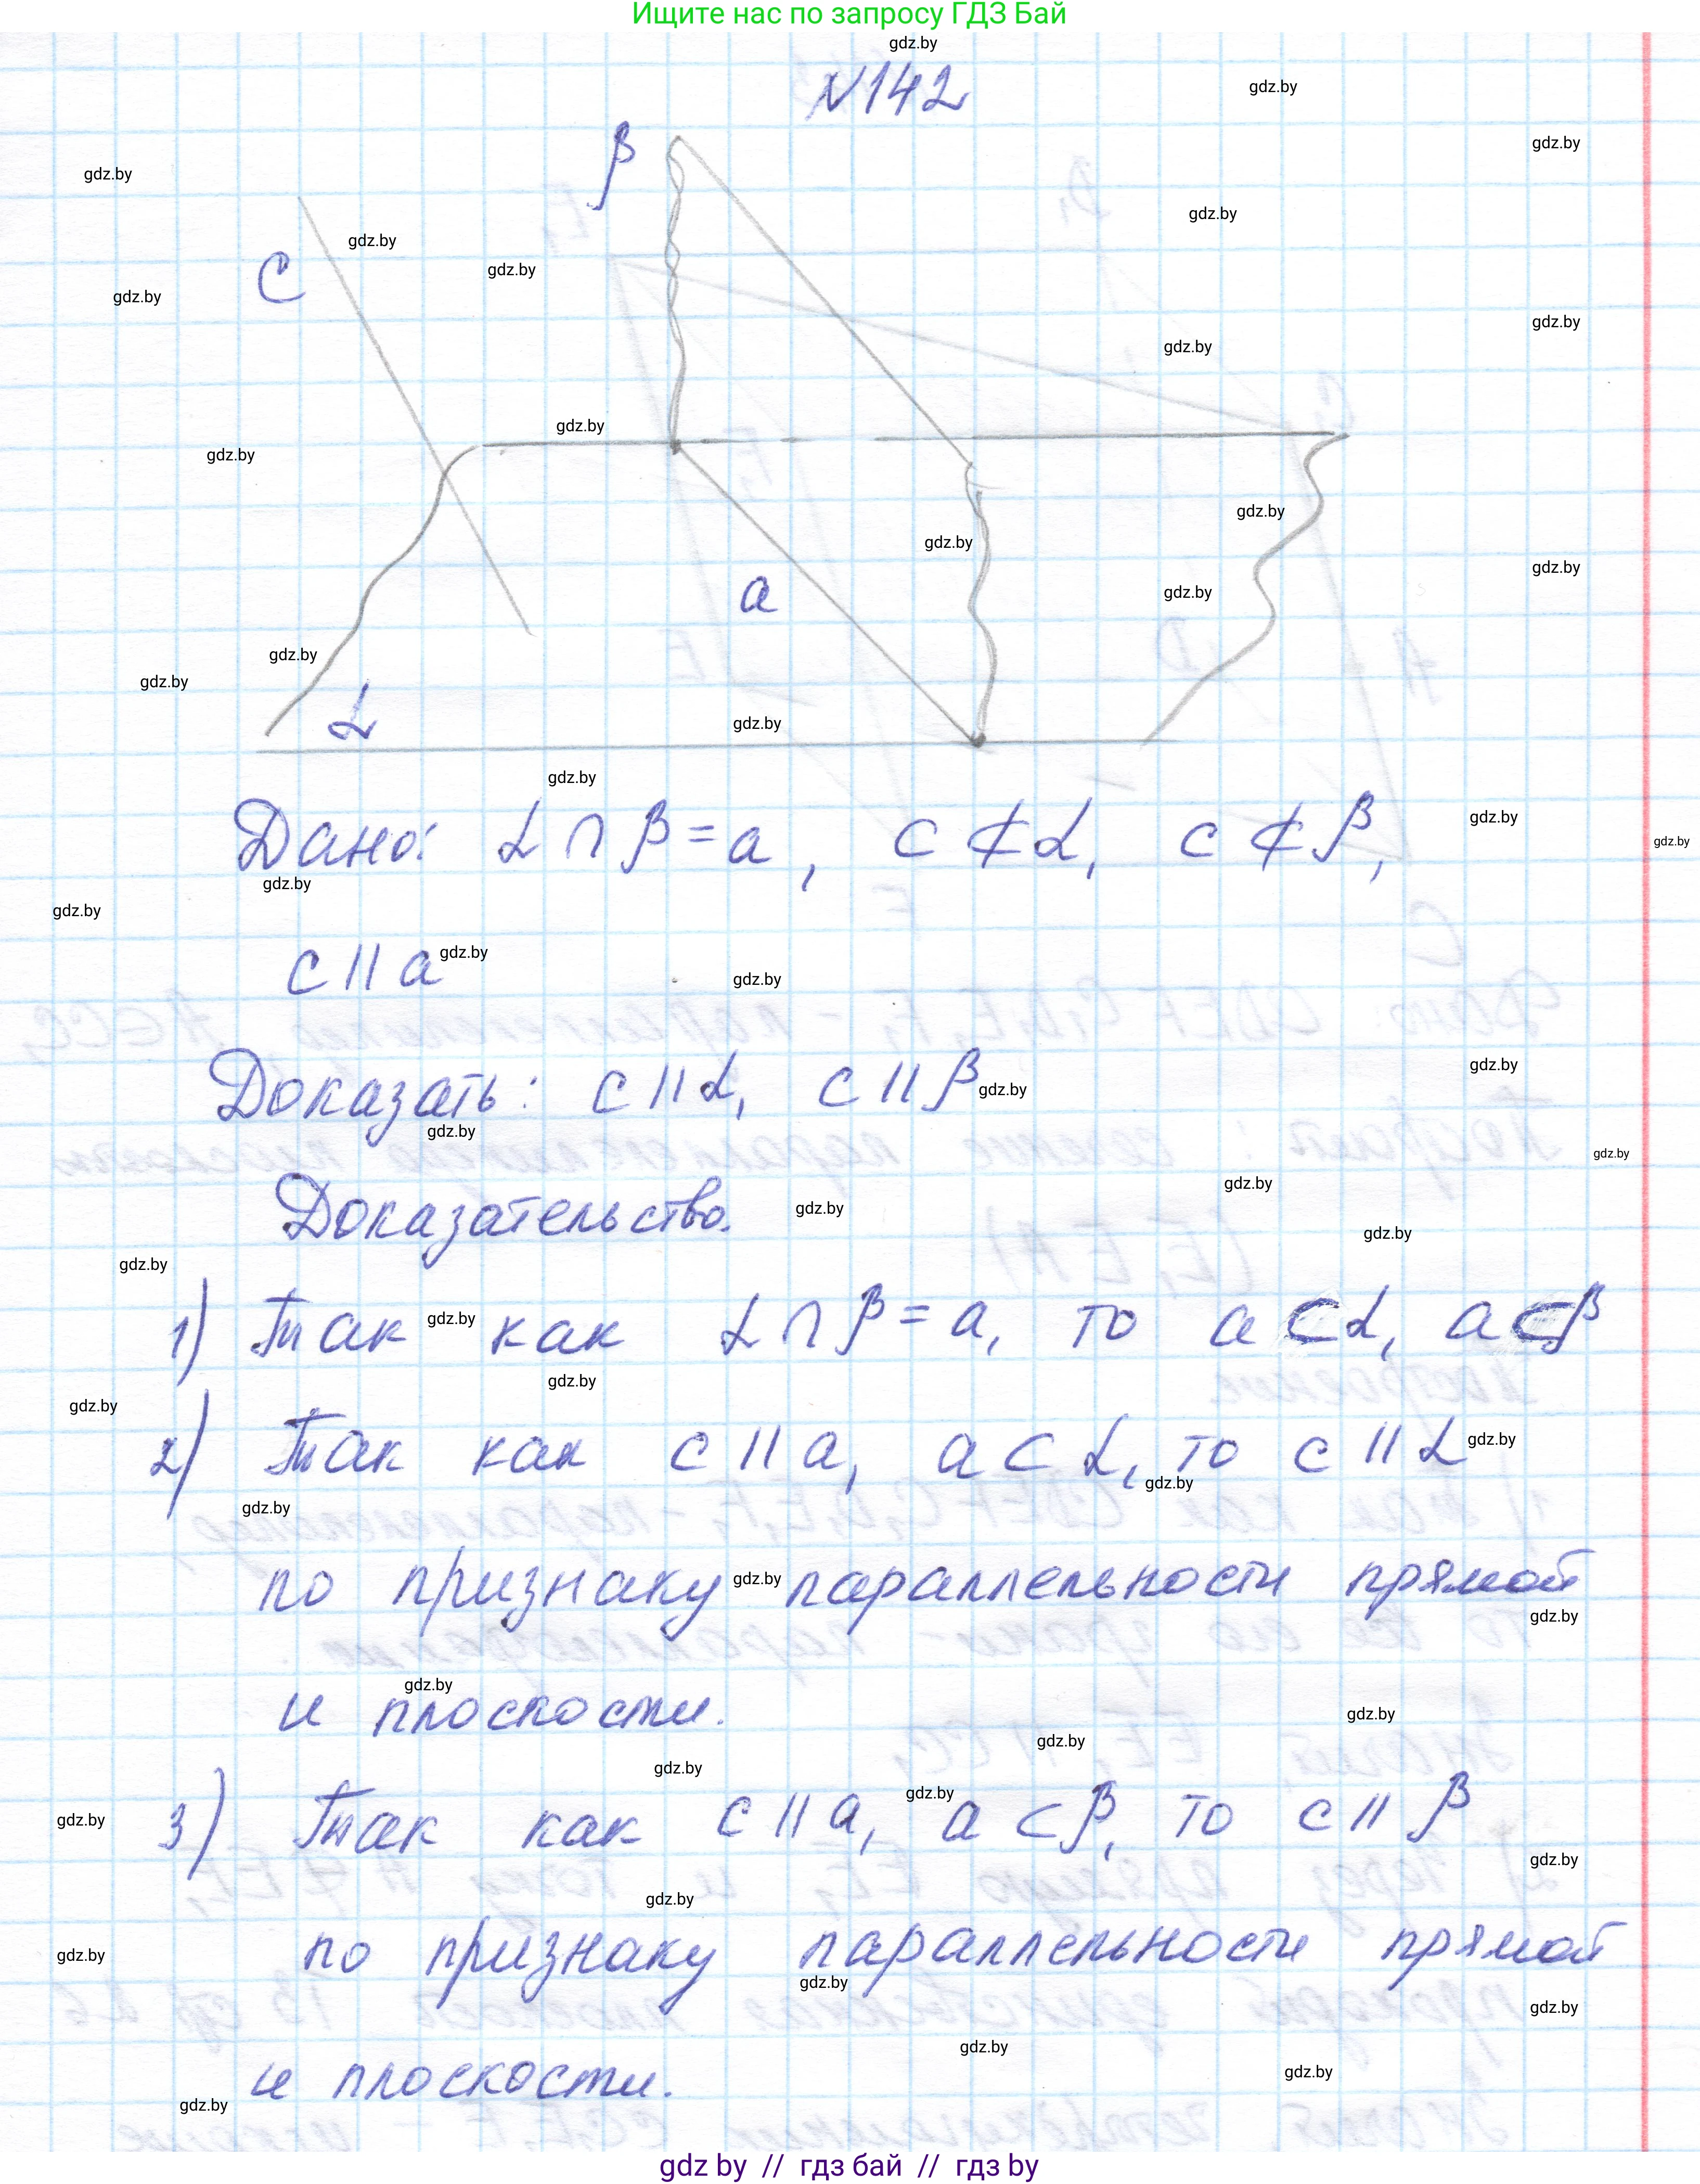 Ищите нас по запросу ГДЗ Бай
№142
β
C
a
α
Дано: α ∩ β = a, c ⊄ α, c ⊄ β,
c || a
Доказать: c || α, c || β
Доказательство.
1) Так как α ∩ β = a, то a ⊂ α, a ⊂ β
2) Так как c || a, a ⊂ α, то c || α
по признаку параллельности прямой
и плоскости.
3) Так как c || a, a ⊂ β, то c || β
по признаку параллельности прямой
и плоскости.
gdz.by
gdz by // гдз бай // гдз by